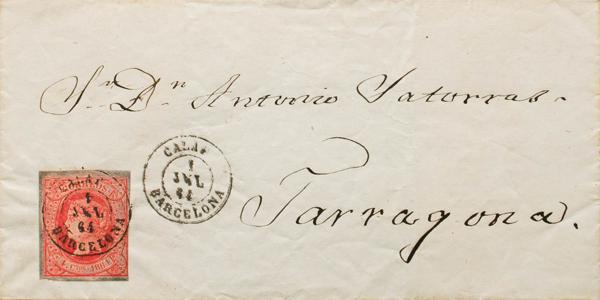 Sr. Dn. Antonio Satorras.
Tarragona.
CALAF
1
JUL
64
BARCELONA
1
JUL
64
BARCELONA